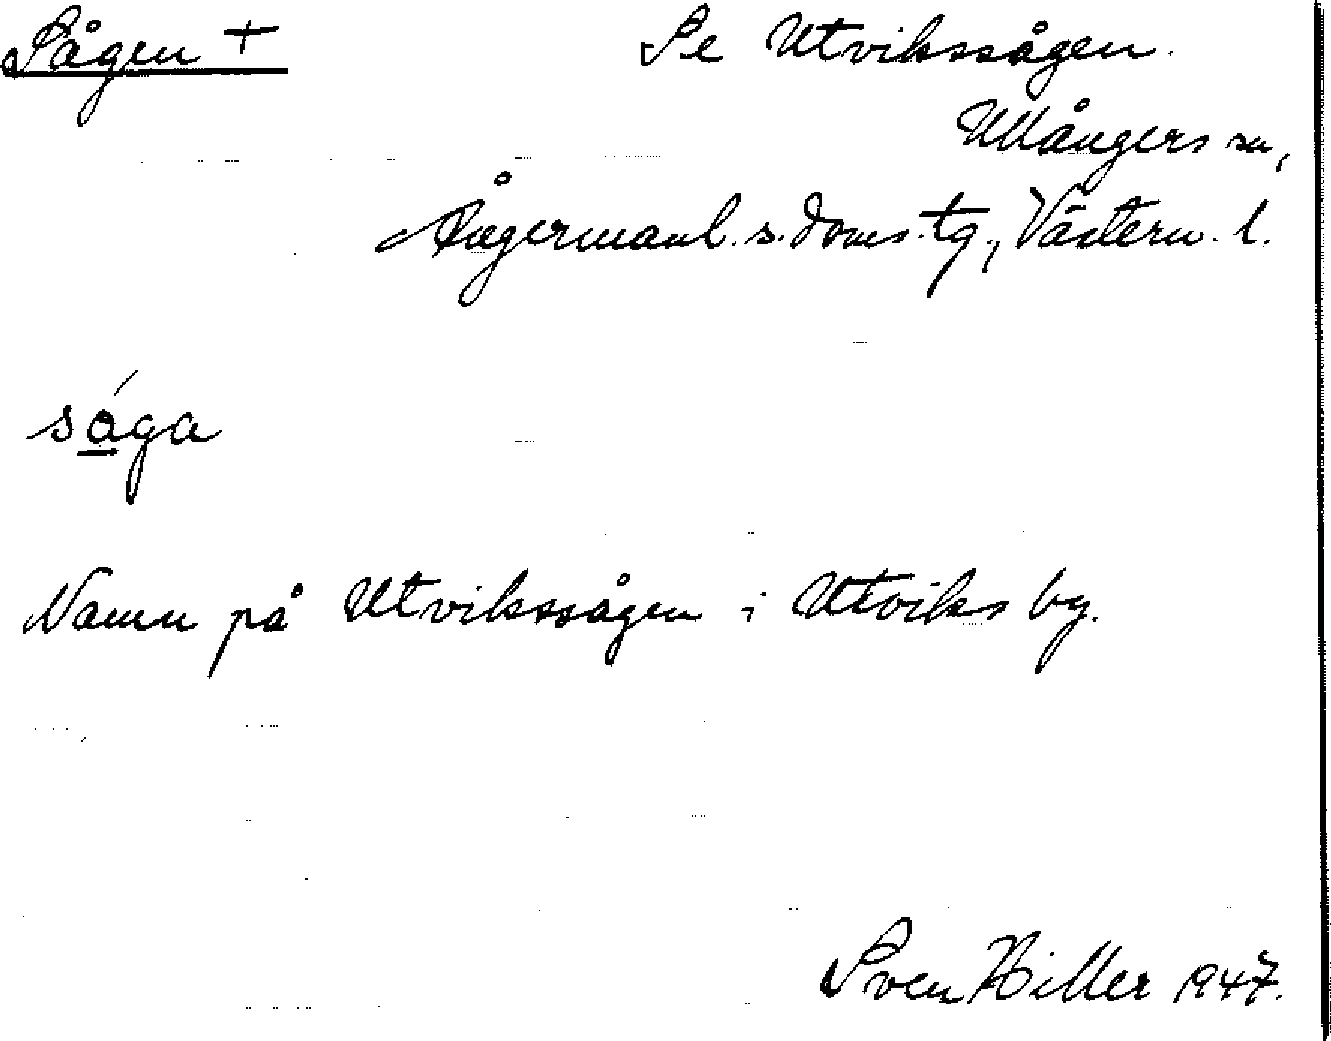 Sågen +
Se Utvikssågen.
Ullångers sn,
Ångermanl. s. doms. tg, Västern. l.
såga
Namn på Utvikssågen i Utviks by.
Sven Hiller 1947.